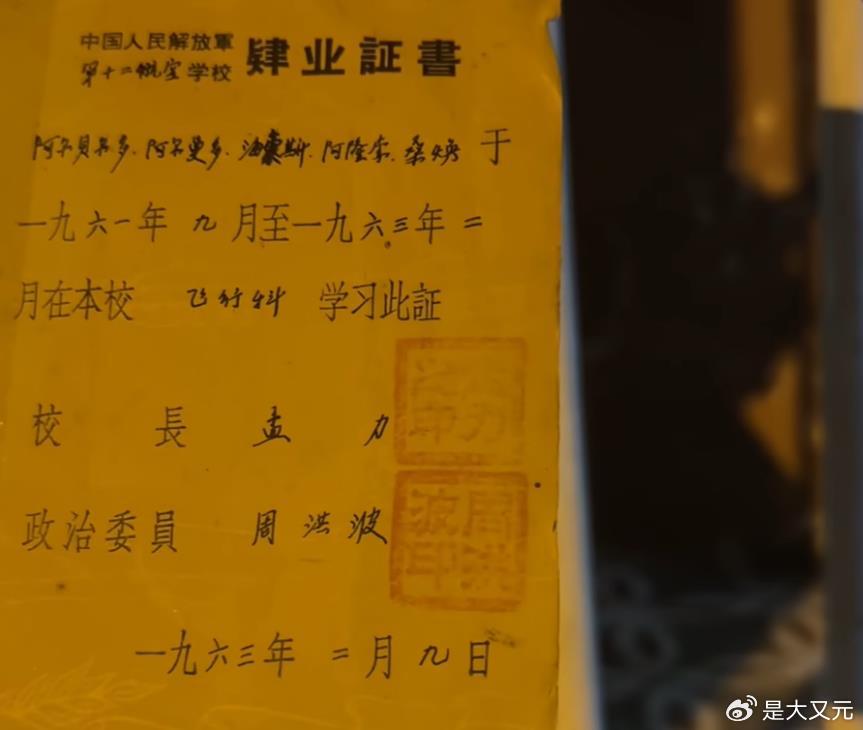 中国人民解放軍
第十二航空学校
肄业証書
阿尔贝尔多.阿尔曼多.海 斯.阿隆索.桑 于
一九六一年 九 月至一九六三年 二
月在本校 飞行科 学习此証
校 長 孟 力
孟力印
政治委員 周 洪 波
周洪波印
一九六三年 二 月 九 日
是大又元